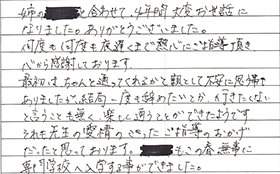 姉の と合わせて、4年間大変お世話に
なりました。ありがとうございました。
何度も何度も夜遅くまで熱心にご指導頂き
心から感謝しております。
最初はちゃんと通ってくれるかと親として不安に思う事
ありましたが、結局一度も辞めたいとか、行きたくない
と言うことも無く、楽しく通うことができたようです
それも先生の愛情のこもったご指導のおかげ
だったと思っております。 もこの春無事に
専門学校へ入学する事ができました。